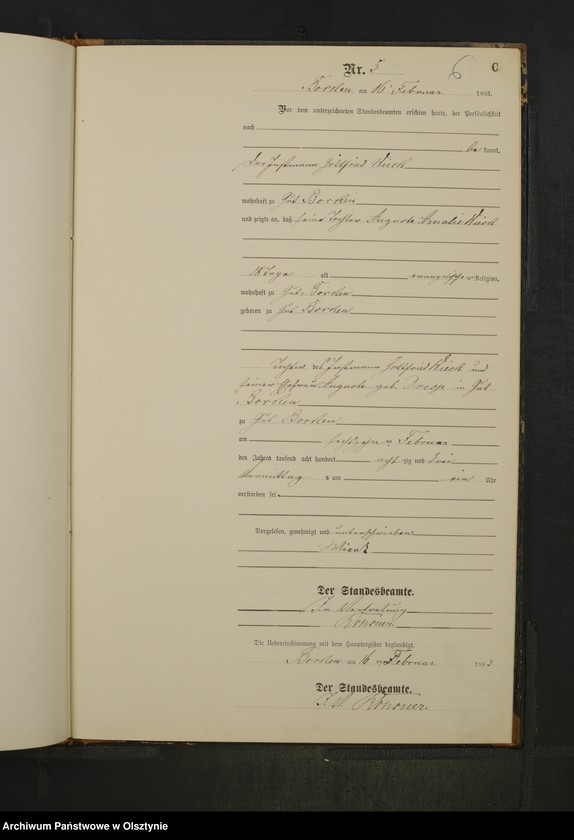 Nr. 5
6
C.
Borken am 16 Februar 1883.
Vor dem unterzeichneten Standesbeamten erschien heute, der Persönlichkeit
nach
be kannt,
der Instmann Gottfried
wohnhaft zu Gut Borken
und zeigte an, daß seine Tochter Auguste Amalie
18 Tage alt evangelischer Religion,
wohnhaft zu Gut Borken
geboren zu Gut Borken
Tochter des Instmann Gottfried und
seiner Ehefrau Auguste geb. in Gut
Borken
zu Gut Borken
am sechszehn Februar
des Jahres tausend acht hundert acht zig und drei
Vormittag s um ein Uhr
verstorben sei
Vorgelesen, genehmigt und unterschrieben
Der Standesbeamte.
In Vertretung
Die Uebereinstimmung mit dem Hauptregister beglaubigt.
Borken am 16 Februar 1883.
Der Standesbeamte.
Archiwum Państwowe w Olsztynie